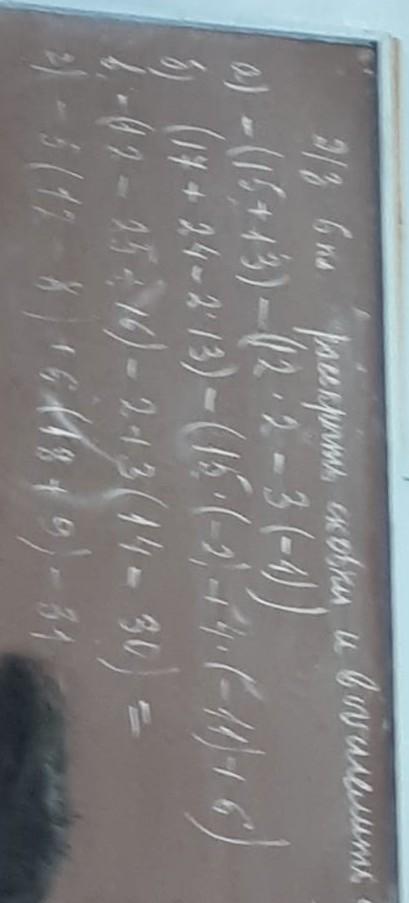 Д/з раскрыть скобки и вычислить
а) -(15+13)-(12·2-3(-1))
б) (17+24-2·13)-(15·(-2)+4·(-11)+6)
-(12-25+16)-2+3(14-30)=
г) -5(12-8)+6(18+9)-31